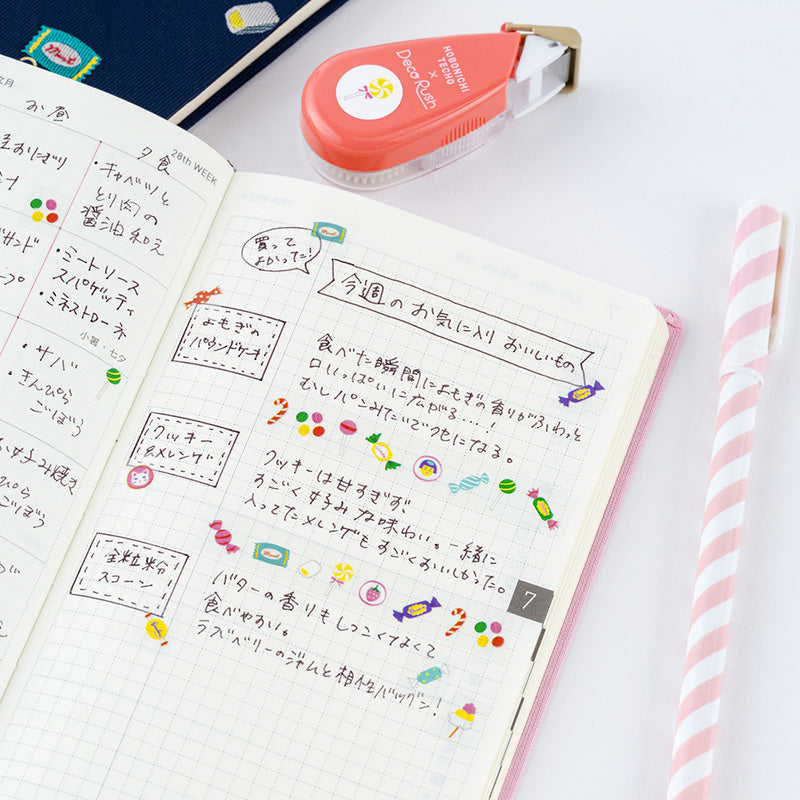 HOBONICHI
TECHO
×
Deco Rush
文月
お昼
夕食
28th WEEK
おにぎり
・キャベツと
とり肉の
醤油和え
サンド
・ミートソース
スパゲッティ
・ミネストローネ
小暑 七夕
・サバ
・きんぴら
ごぼう
お好み焼き
ごぼう
買って
よかった!
今週のお気に入りおいしいもの
よもぎの
パウンドケーキ
食べた瞬間によもぎの香りがふわっと
口いっぱいに広がる…!
むしパンみたいでクセになる。
クッキー
&メレンゲ
クッキーは甘すぎず、
すごく好みな味わい。一緒に
入ってたメレンゲもすごくおいしかった。
全粒粉
スコーン
バターの香りもしつこくなくて
食べやすい。
ラズベリーのジャムと相性バツグン!
7